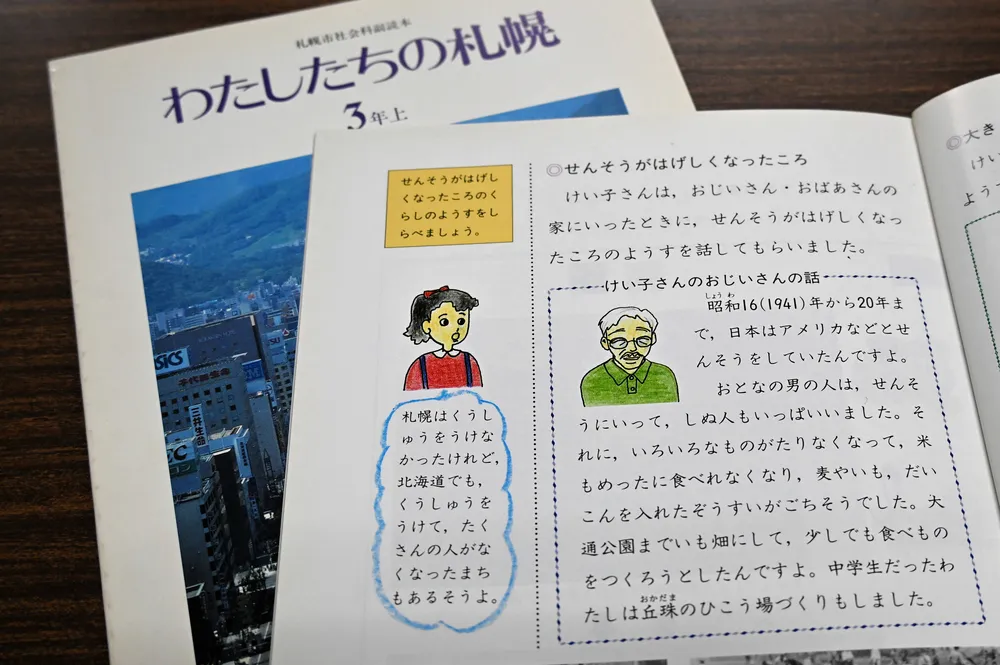 札幌市社会科副読本
わたしたちの札幌
3年上
千代田生命
三井生命
せんそうがはげし
くなったころのく
らしのようすをし
らべましょう。
札幌はくうし
ゅうをうけな
かったけれど,
北海道でも,
くうしゅうを
うけて, たく
さんの人がな
くなったまち
もあるそうよ。
◎せんそうがはげしくなったころ
けい子さんは, おじいさん・おばあさんの
家にいったときに, せんそうがはげしくなっ
たころのようすを話してもらいました。
けい子さんのおじいさんの話
しょうわ
昭和16(1941)年から20年ま
で, 日本はアメリカなどとせ
んそうをしていたんですよ。
おとなの男の人は, せんそ
うにいって, しぬ人もいっぱいいました。そ
れに, いろいろなものがたりなくなって, 米
もめったに食べれなくなり, 麦やいも, だい
こんを入れたぞうすいがごちそうでした。大
通公園までいも畑にして, 少しでも食べもの
をつくろうとしたんですよ。中学生だったわ
おかだま
たしは丘珠のひこう場づくりもしました。
◎大き
けい
よう